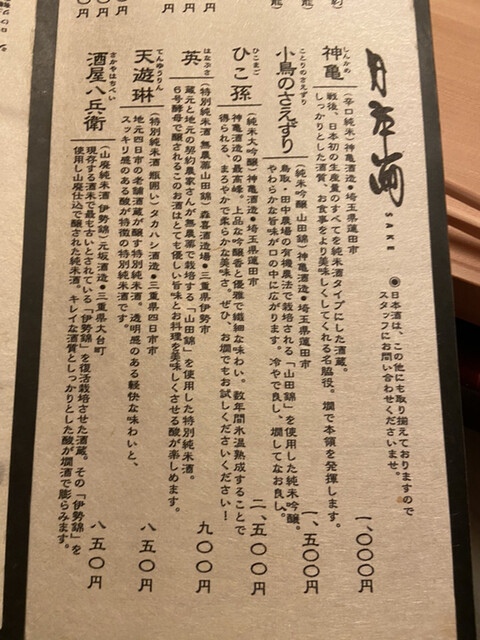 日本酒
SAKE
◉日本酒は、この他にも取り揃えておりますので
スタッフにお問い合わせくださいませ。
しんかめ
神亀
(辛口純米) 神亀酒造●埼玉県蓮田市
戦後、日本初の生産量のすべてを純米酒タイプにした酒蔵。
しっかりとした酒質、お食事をより美味しくしてくれる名脇役。燗で本領を発揮します。
一、〇〇〇円
ことりのさえずり
小鳥のさえずり
(純米吟醸 山田錦) 神亀酒造●埼玉県蓮田市
鳥取・田中農場の有機農法で栽培される「山田錦」を使用した純米吟醸。
やわらかな旨味が口の中に広がります。冷やで良し、燗してなお良し。
一、五〇〇円
ひこまご
ひこ孫
(純米大吟醸) 神亀酒造●埼玉県蓮田市
神亀酒造の最高峰。上品な吟醸香と優雅で繊細な味わい。数年間氷温熟成することで
得られる、まろやかで柔らかな美味さ。ぜひ、お燗でもお試しくださいください!
二、五〇〇円
はなぶさ
英
(特別純米酒 無農薬山田錦) 森喜酒造場●三重県伊勢市
蔵元と地元の契約農家さんが無農薬で栽培する「山田錦」を使用した特別純米酒。
6号酵母で醸されるこのお酒はとても優しい旨味とお料理を美味しくさせる酸が楽しめます。
九〇〇円
てんゆうりん
天遊琳
(特別純米酒 瓶囲い) タカハシ酒造●三重県四日市市
地元四日市の老舗酒蔵が醸す特別純米酒。透明感のある軽快な味わいと、
スッキリ感のある酸が特徴の特別純米酒です。
八五〇円
さかやはちべい
酒屋八兵衛
(山廃純米酒 伊勢錦) 元坂酒造●三重県大台町
現存する酒米で最も古いとされている「伊勢錦」を復活栽培させた酒蔵。その「伊勢錦」を
使用し山廃仕込で醸された純米酒。キレイな酒質としっかりとした酸が燗酒で膨らみます。
八五〇円